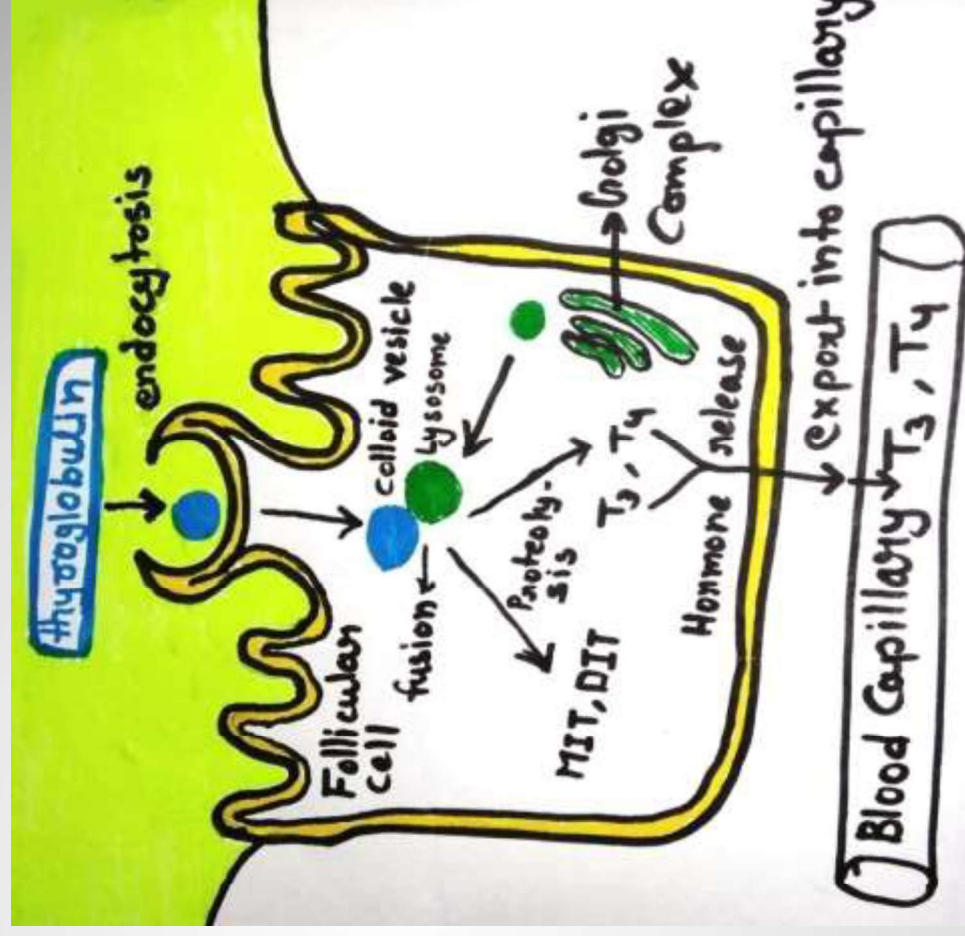 thyroglobulin
endocytosis
Follicular
cell
colloid vesicle
Lysosome
fusion
Golgi
Complex
Proteoly-
sis
MIT, DIT
T3, T4
Hormone release
export into capillary
Blood Capillary T3, T4